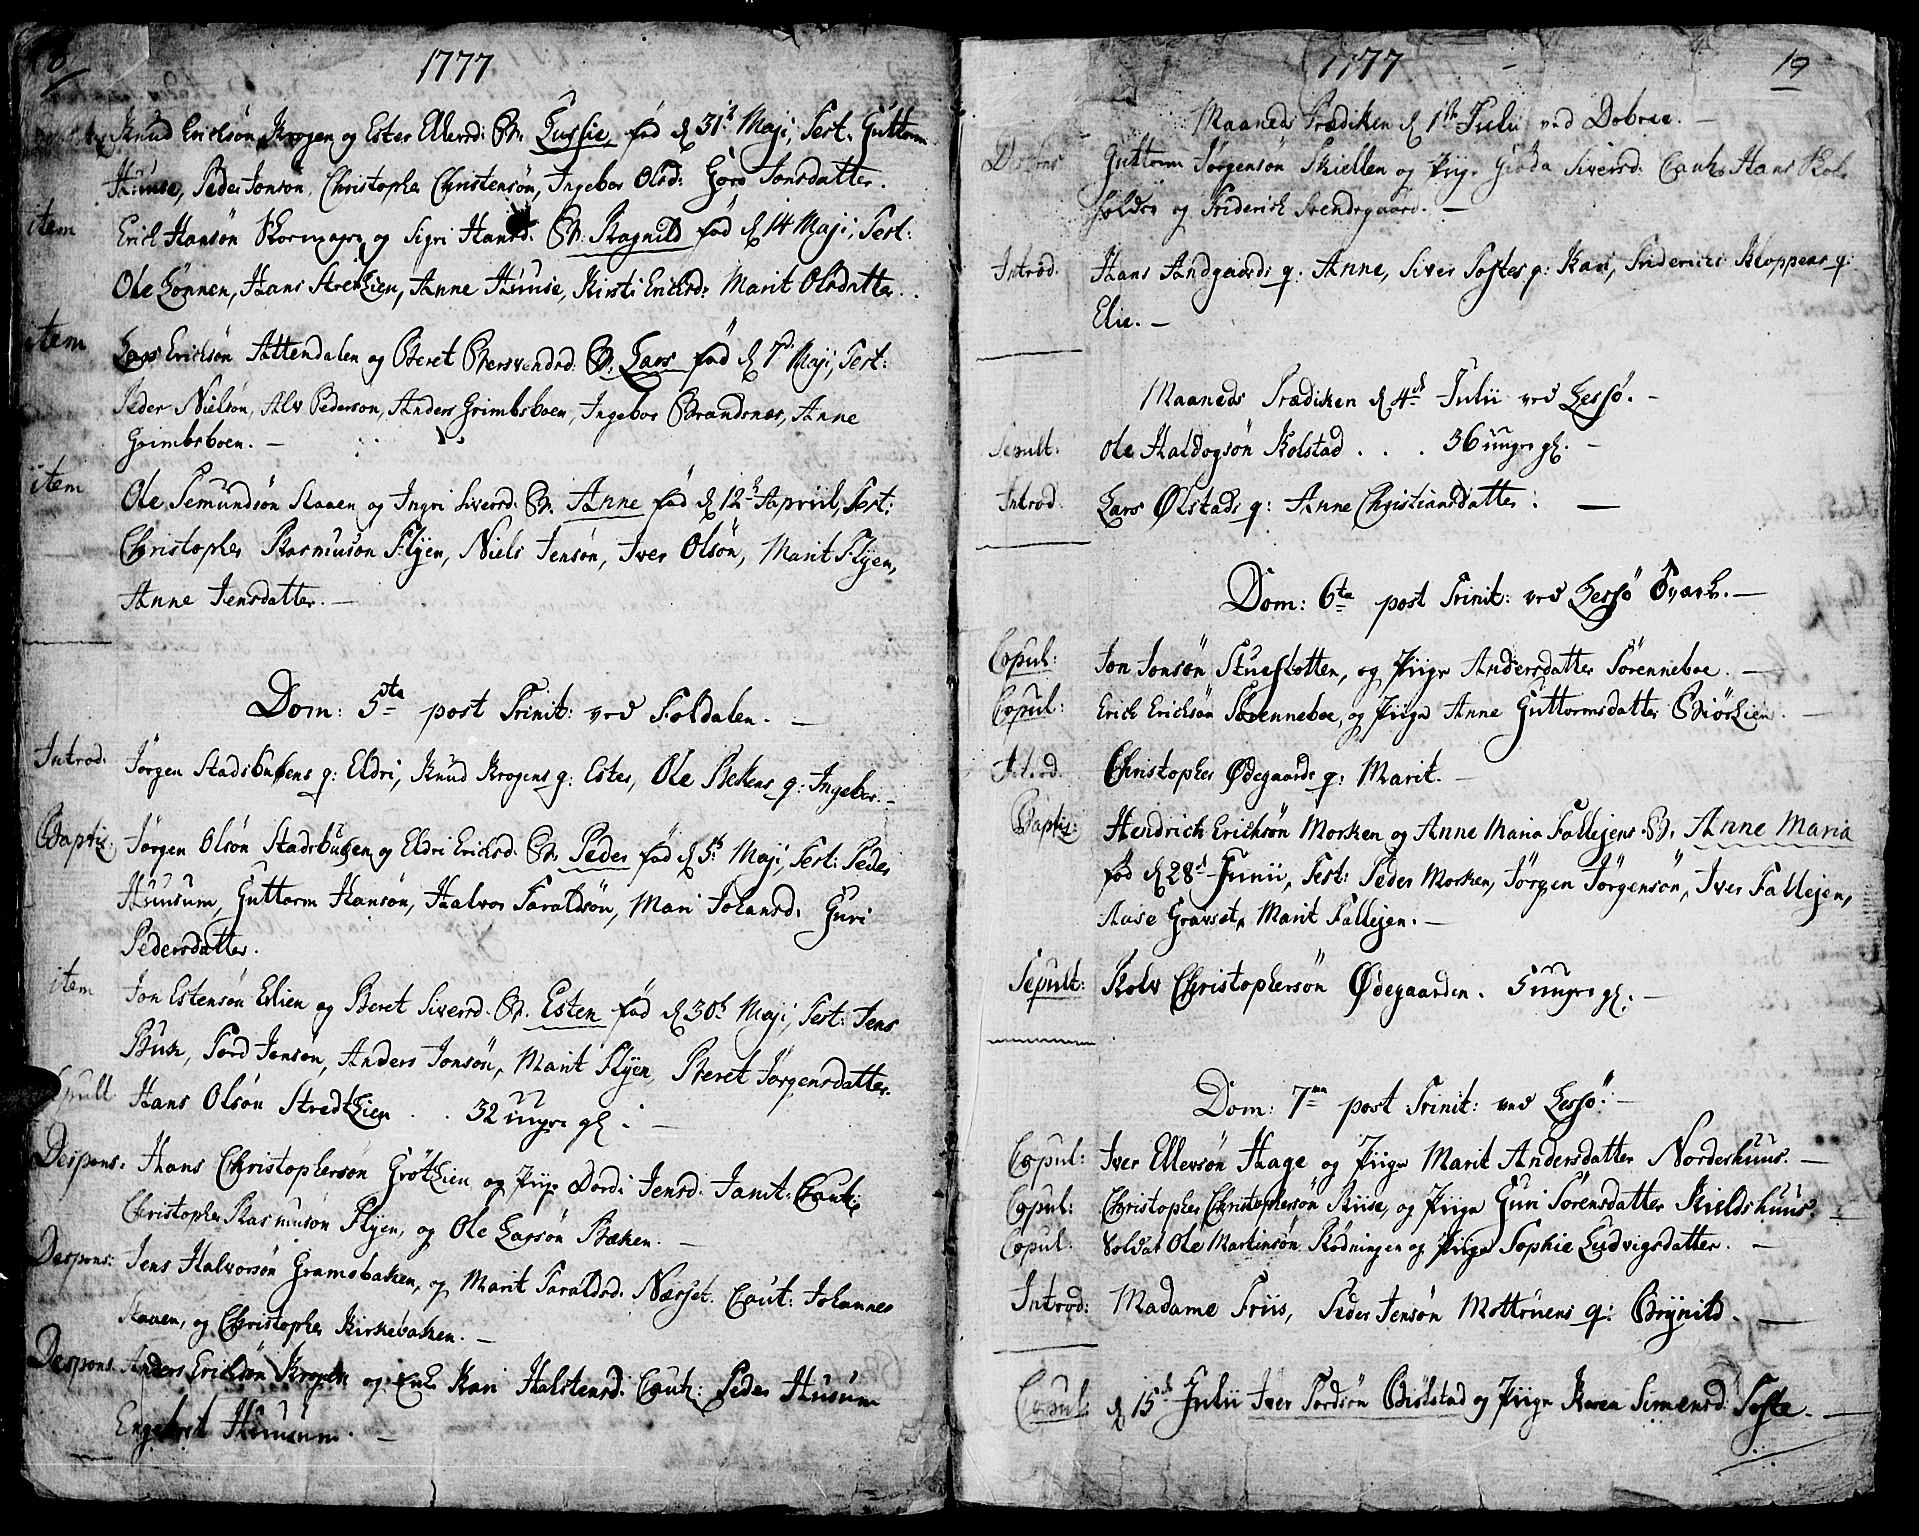 18
1777
Baptiz: Knud Erichsøn Krogen og Ester Ellevsd: B. Tussie fød d 31t Maji, Test: Guttorm
Huuse, Peder Jonsøn, Christopher Christensøn, Ingebor Olsd: Goro Jonsdatter.
item Erich Hansøn og Sigri Hansd: B. Ragnild fød d 14 Maji, Test:
Ole Lønnen, Hans Stretlien, Anne Huuse, Kirsti Erichsd: Marit Olsdatter.
item Lars Erichsøn Attendalen og Beret Bersvendsd: B. Lars fød d 7d Maji, Test:
Peder Nielsøn, Alv Pedersøn, Anders Grimbsboen, Ingebor Brandsnes, Anne
Grimbsboen. —
item Ole Semundsøn Staaen og Ingri Siversd: B. Anne fød d 12t Apriil, Test:
Christopher Rasmusøn Flyen, Niels Jensøn, Iver Olsøn, Marit Flyen,
Anne Jensdatter. —
Dom: 5ta post Trinit: ved Foldalen. —
Introd: Jørgen Stadsbuens q: Eldri, Knud Krogens q: Ester, Ole Bekens q: Ingebor. —
Baptiz: Jørgen Olsøn Stadsbuen og Eldri Erichsd. B. Peder fød d 5t Maji, Test: Peder
Huusum, Guttorm Hansøn, Halvor Taraldsøn, Mari Johansd: Guri
Pedersdatter.
item Jon Estensøn Eelien og Beret Siversd. B. Esten fød d 30t Maji, Test: Jens
Buk, Tord Jensøn, Anders Jonsøn, Marit Flyen, Beret Jørgensdatter.
Sepult Hans Olsøn Stretlien . . 32 uuger gl. —
Despons: Hans Christophersøn Grøtlien og Pige Dordi Jensd. Jamt: Caut:
Christopher Rasmusøn Flyen, og Ole Larsøn Beken. —
Despons: Jens Halvorsøn Gramsbaken, og Marit Taraldsd: Næsset. Caut: Johannes
Staaen, og Christopher Kirkebaken. —
Despons. Anders Erichsøn Krogen og Enk Kari Halstensd. Caut: Peder Huusum
Engebret Huusum. —
1777 19
Maaneds Prædiken d 1ste Julii ved Dobree. —
Despons Guttorm Jørgensøn Skiellen og Pige Siversd: Caut: Hans Kol-
og Friderich Svendsgaard. —
Introd: Hans Andgaards q: Anne, Siver Toftes q: Kari, Friderichs Kloppens q:
Elie. —
Maaneds Prædiken d 4de Julii ved Lessø. —
Sepult: Ole Haldogsøn Kolstad . . . 36 uuger gl. —
Introd. Lars Ølstads q: Anne Christiansdatter. —
Dom: 6ta post Trinit: ved Lessø Værk. —
Copul: Jon Jonsøn Stueflotten, og Piige Andersdatter Sørenneboe. —
Copul: Erich Erichsøn Sørenneboe, og Piige Anne Guttormsdatter Biørlien. —
Introd Christopher Ødegaards q: Marit. —
Baptiz: Hendrich Erichsøn Morken og Anne Maria Fallejens B. Anne Maria
fød d 28d Junii, Test: Peder Morken, Jørgen Jørgensøn, Iver Fallejen,
Aase Gravset, Marit Fallejen. —
Sepult: Rolv Christophersøn Ødegaarden. 5 uuger gl. —
Dom: 7ma post Trinit: ved Lessø. —
Copul: Iver Ellevsøn Hage og Piige Marit Andersdatter Nordeshuus. —
Copul: Christopher Christophersøn Riise, og Piige Guri Sørensdatter Kieldshuus. —
Copul: Soldat Ole Martinsøn Rødningen og Piige Sophie Ludvigsdatter. —
Introd: Madame Friis, Peder Jensøn Mottrøens q: Brynild. —
Copul: d 15de Julii Iver Tordsøn Biølstad og Piige Karen Simensd: Tofte. —